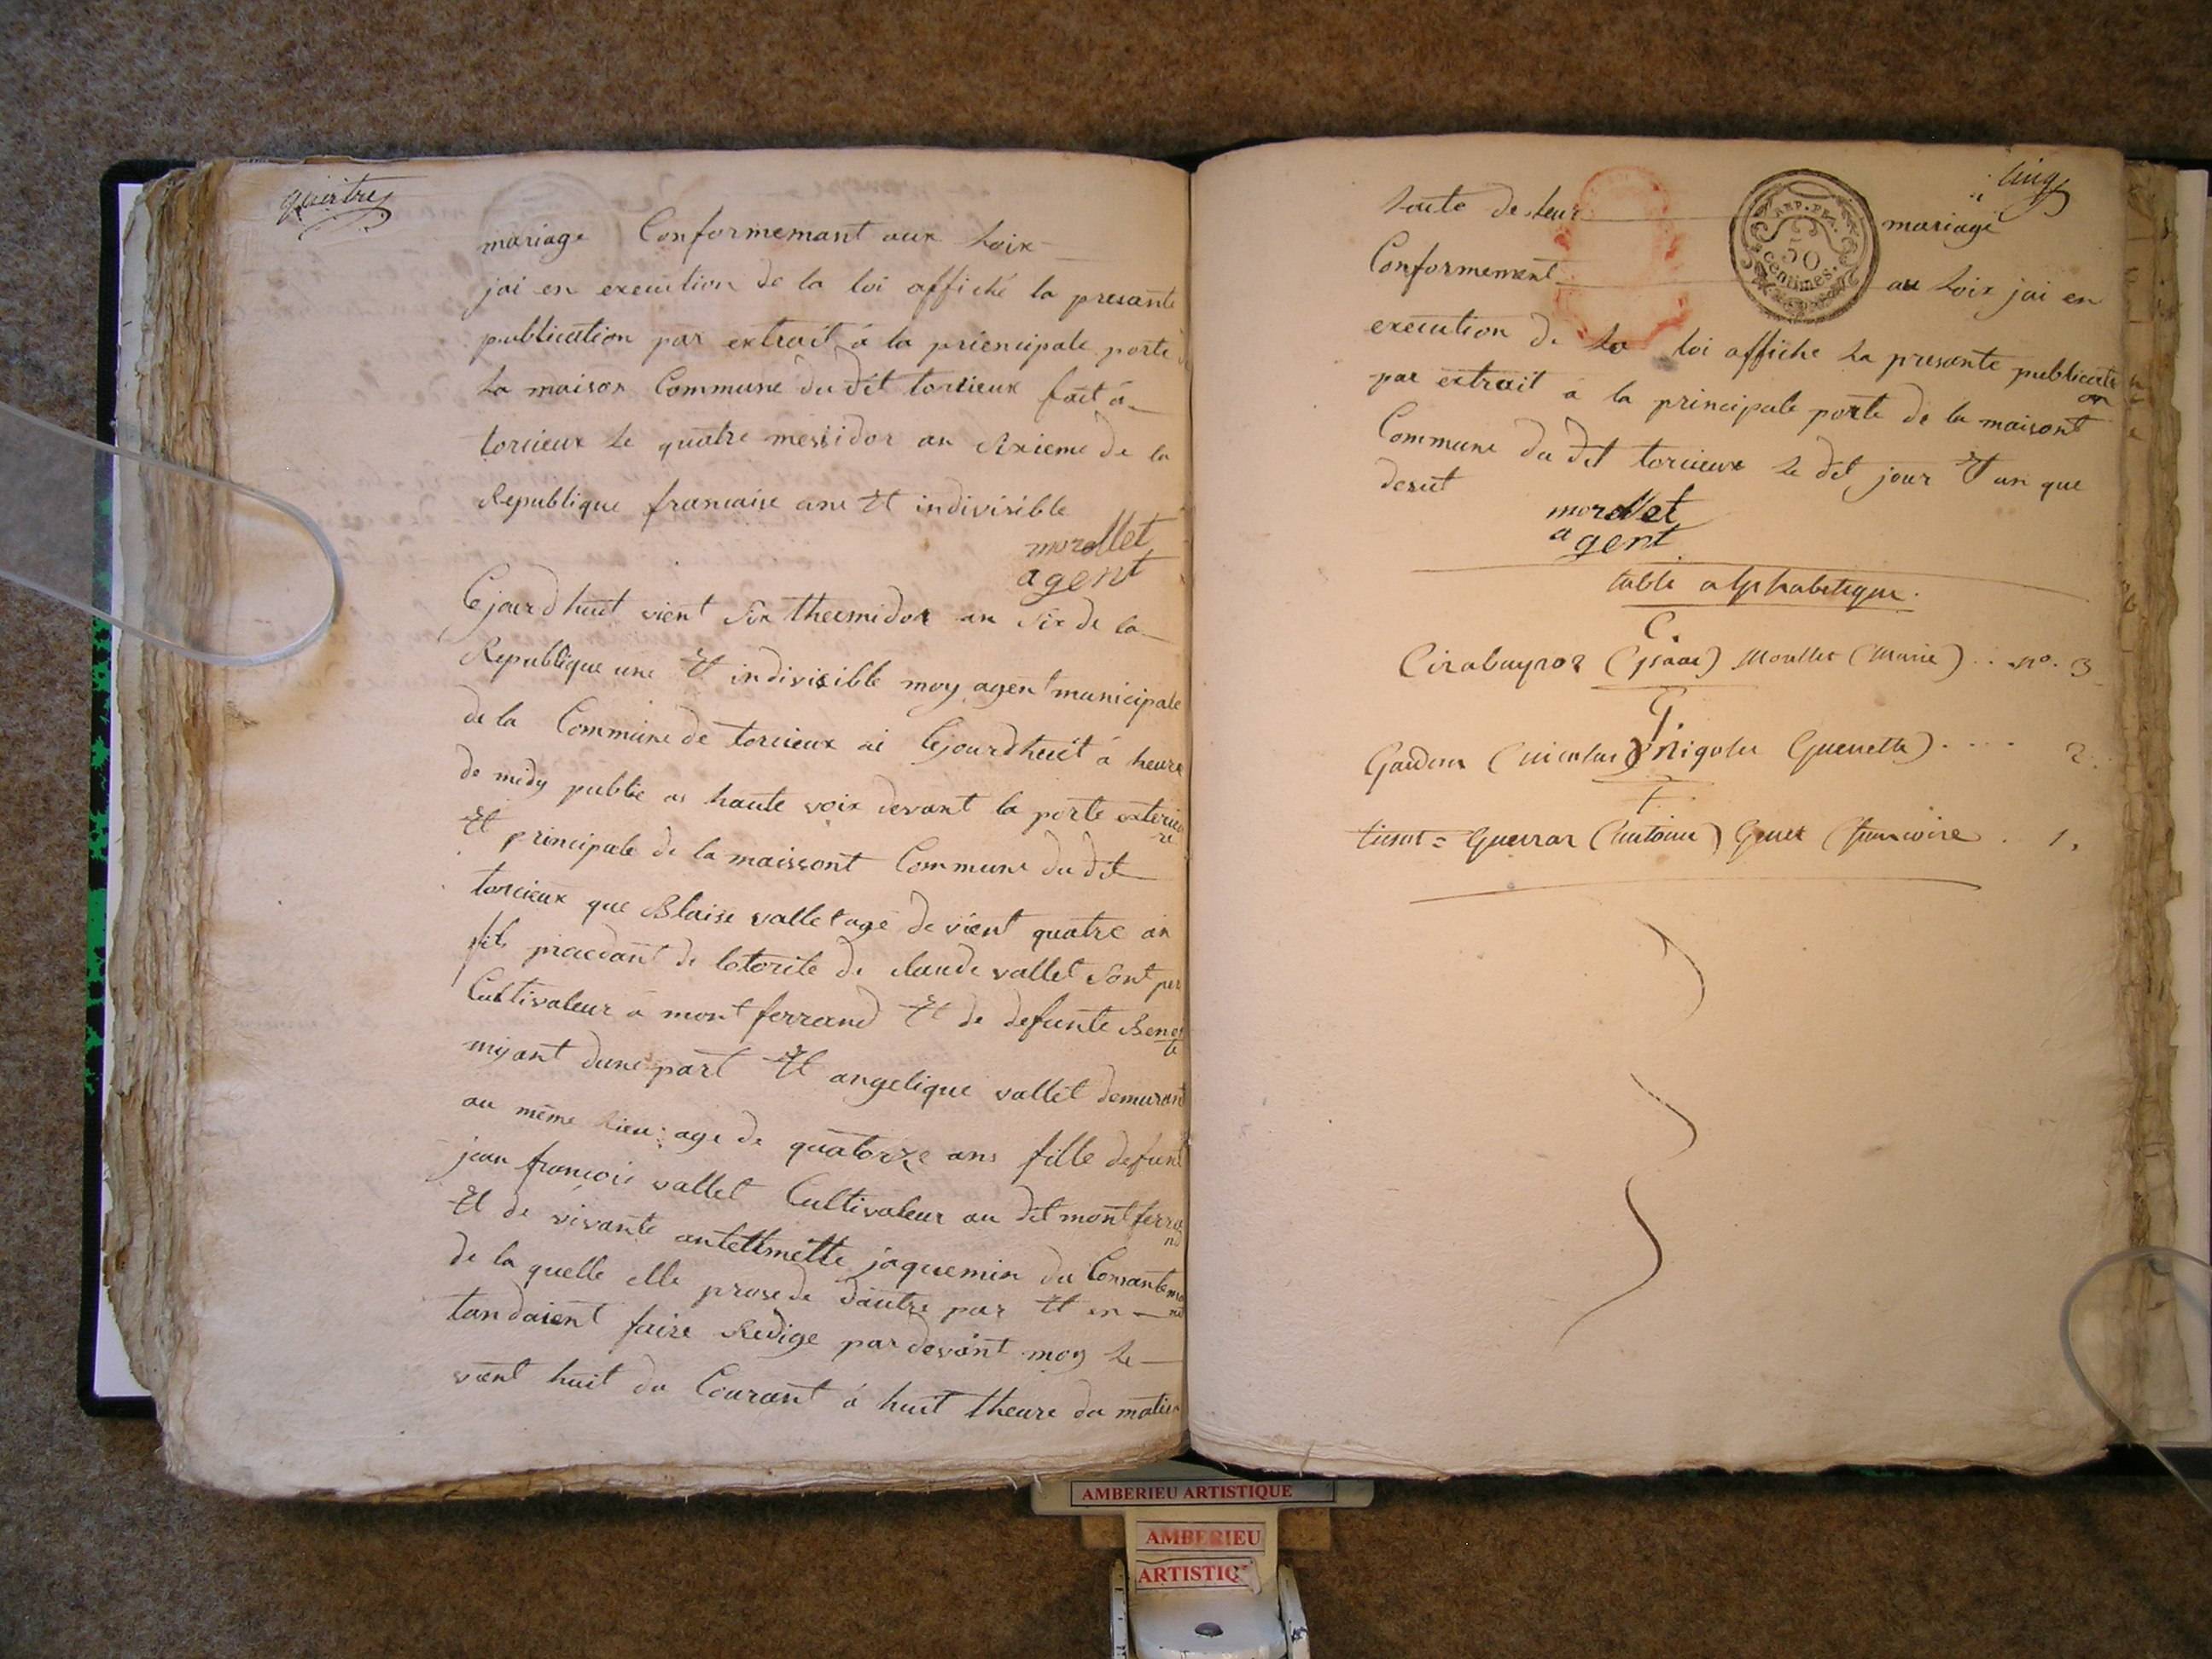 quatre
mariage Conformemant aux Loix
jai en execution de la loi affiché la presante
publication par extrait à la priencipale porte
La maison Commune du dit torcieux fait à
torcieux Le quatre messidor an sixieme de la
Republique francaise une Et indivisible
morellet
agent
Cejourdhuit vient six thermidor an six de la
Republique une Et indivisible moy agent municipale
de la Commune de torcieux ai Cejourdhuit à heure
de midy publié as haute voix devant la porte exterieu
re
Et principale de la maissont Commune du dit
torcieux que Blaise vallet agé de vient quatre an
fils procedant de lotorite de claude vallet sont per
Cultivateur à mont ferrand Et de defunte Benoi
te
mijant dune part Et angelique vallet demurant
au même Lieu age de quatorze ans fille defunt
jean francois vallet Cultivateur au dit mont ferra
nd
Et de vivante antelmette jaquemin du
de la quelle elle prosede dautre par Et en
tandaient faire Redige pardevant moy Le
vient huit du Courant à huit theure du matien
cinq
Laute de leur mariage
Conformement au Loix jai en
execution de La loi affiche La presante publicati
on
par extrait a la principale porte de la maisont
Commune du dit torcieux le dit jour Et an que
desut
morellet
agent
REP. FR.
50
centimes.
table alphabetique.
C.
(isaac) Moullet (Marie) .. no. 3
G.
(nicolas) 2.
T.
tissot = Guerrar (antoine) (francoise . 1,
AMBERIEU ARTISTIQUE
AMBERIEU
ARTISTIQ